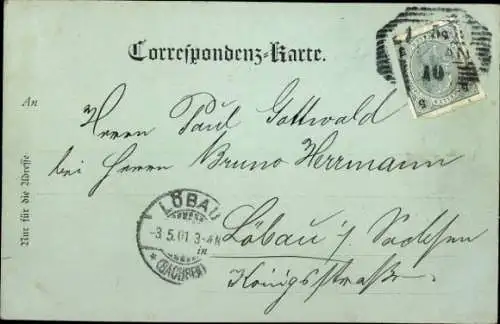 Correspondenz-Karte.
An
Herrn Paul Gottwald
bei Herrn Bruno Herrmann
in
Löbau i/ Sachsen
Königsstraße.
Nur für die Adresse.
LÖBAU
-3.5.01 3-4N
* (SACHSEN)
5